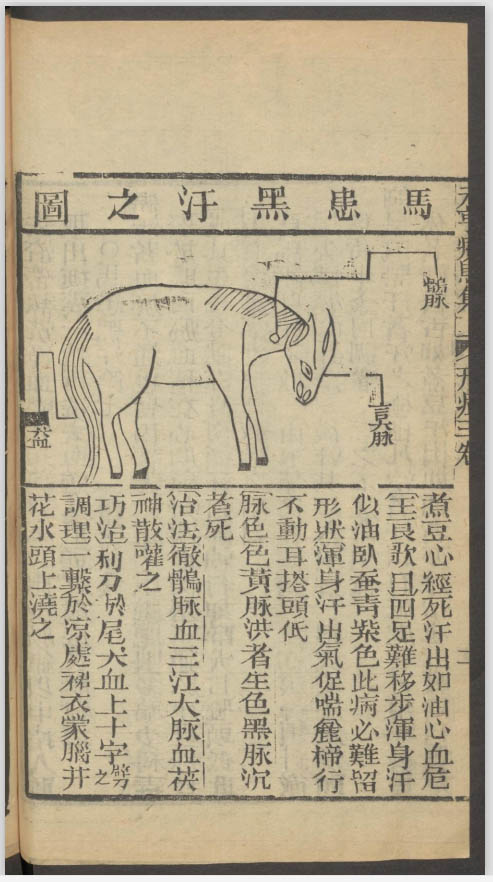 馬患黑汗之圖
鶻脉
大脉
煮豆心經死汗出如油心血危
王良歌曰四足難移步渾身汗
似油臥蚕青紫色此病必難留
形狀渾身汗出氣促喘麄行
不動耳搭頭低
脉色色黃脉洪者生色黑脉沉
者死
治法徹鶻脉血三江大脉血茯
神散嚾之
巧治利刀於尾尖血上十字劈之
調理一繫於凉處裙衣蒙腦井
花水頭上澆之